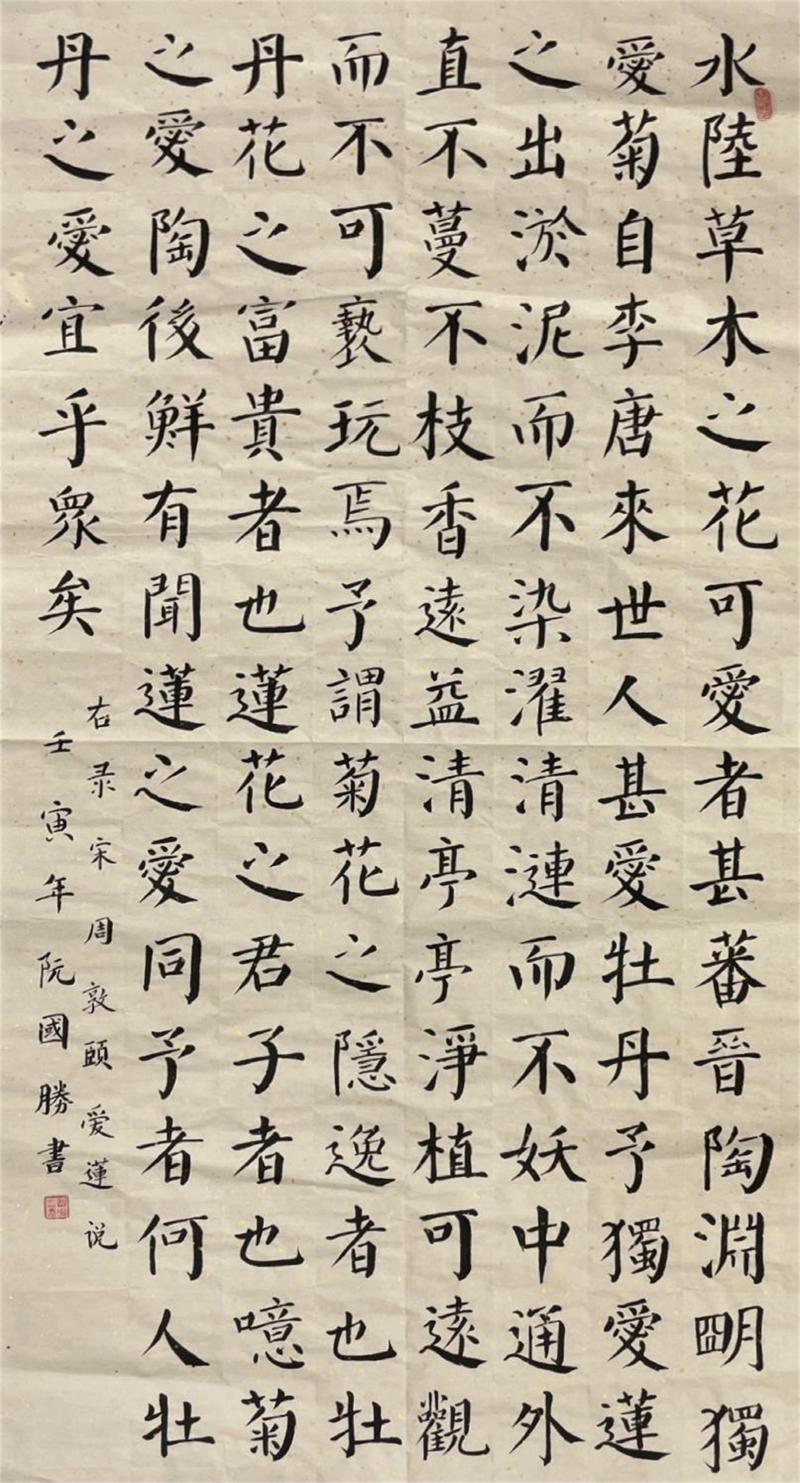 水陸草木之花可愛者甚蕃晉陶淵明獨
愛菊自李唐來世人甚愛牡丹予獨愛蓮
之出淤泥而不染濯清漣而不妖中通外
直不蔓不枝香遠益清亭亭淨植可遠觀
而不可褻玩焉予謂菊花之隱逸者也牡
丹花之富貴者也蓮花之君子者也噫菊
之愛陶後鮮有聞蓮之愛同予者何人牡
丹之愛宜乎眾矣
右录宋周敦頤愛蓮说
壬寅年阮國勝書